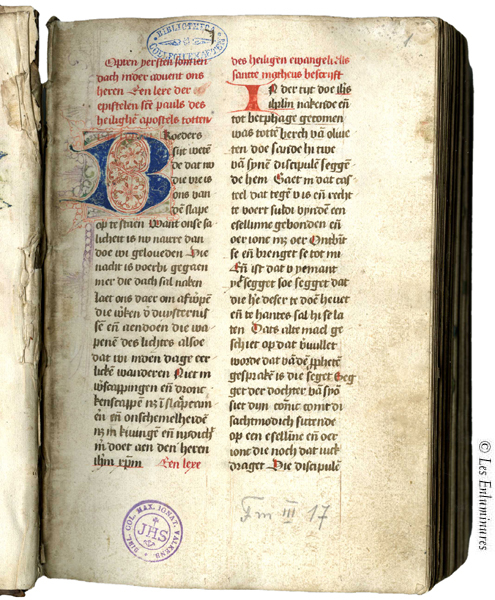 BIBLIOTHECA
Opten yersten sonnen
dach inder advent ons
heren Een lexe der
epistelen sct pauls des
heilighē apostels totten
Roeders
sijt wetē
de dat nv
die vre is
ons van
dē slape
op te staen Want onse sa
licheit is nv naere dan
doe wi gelouedē Die
nacht is voerbi gegaen
mer die dach sal naken
Laet ons daer om afwerpē
die wken d' duysternis
se en aendoen die wa
penē des lichtes alsoe
dat wi inden dage eer
lickē wanderen Niet in
en dronc
kenscappen
en en onschemelheidē
in kiuingē en
m doet aen den heren
ihm xpm Een lexe
des heiligen ewangelistis
sancte matheus bescrijft
IN der tijt doe ihs
nakende en
tot betphage gecomen
was tottē berch vā oliue
ten doe sande hi twe
vā synē discipulē seggē
de hem Gaet in dat cas
teel dat tegē v is en recht
te voert sult vyndē een
eselinne gebonden en
oer ionc mz oer Ontbijt
se en brenget se tot mi
En ist dat v yemant
yet segget soe segget dat
die he deser te doē heuet
en te hantes sal hi se la
ten Dats alte mael ge
schiet op dat vuullet
worde dat vā dē ꝓphetē
gesprakē is die seget Seg
get der dochter vā syō
siet dijn comt di
sachtmodich sittende
op een eselinne en oer
ionc die noch dat iuck
draget Die discipulē
BIBL. COL. MAX. IGNAT. VALKENB.
JHS
Fm III 17
© Les Enluminures